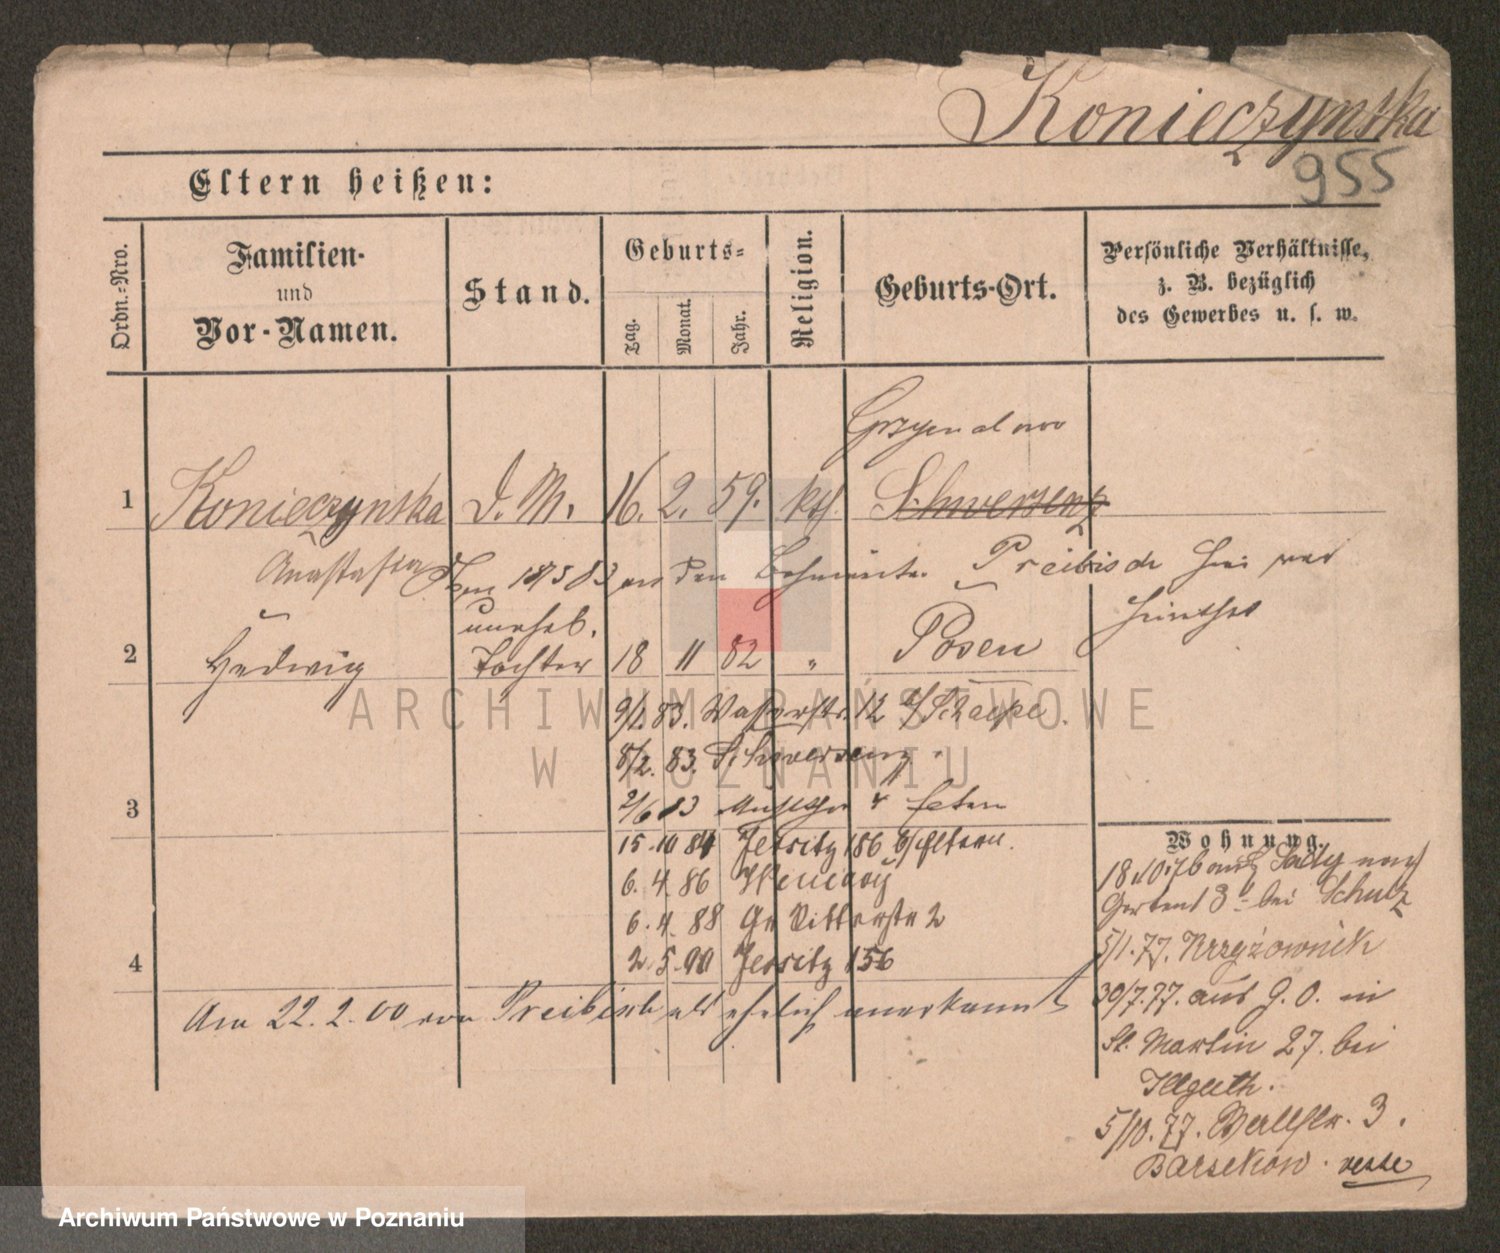 Konieczynska
955
Eltern heißen:
Ordn.-Nro.
Familien-
und
Vor-Namen.
Stand.
Geburts-
Tag.
Monat.
Jahr.
Religion.
Geburts-Ort.
Persönliche Verhältnisse,
z. B. bezüglich
des Gewerbes u. s. w.
1 Konieczynska D. M. 16. 2. 59. kth. Schwersenz
Anastasia
Preibisch
unehel.
2 Hedwig Tochter 18 11 82 " Posen
83. Wasserstr. 12
8/2. 83. Schwersenz
3 2/6 83
15. 10 84 Jersitz 186 b/Eltern.
6. 4. 86
6. 4. 88 Gr Ritterstr 2
4 2. 5. 90 Jersitz 156
Am 22. 2. 00 von Preibisch als ehelich anerkannt
Wohnung.
18. 10. 76 nach
3 bei Schulz
5/1. 77. Krzyżownik
30/7. 77. aus g. O. in
St. Martin 27. bei
Illguth.
5/10. 77. Wallstr. 3.
Barsekow.
ARCHIWUM PAŃSTWOWE
W POZNANIU
Archiwum Państwowe w Poznaniu